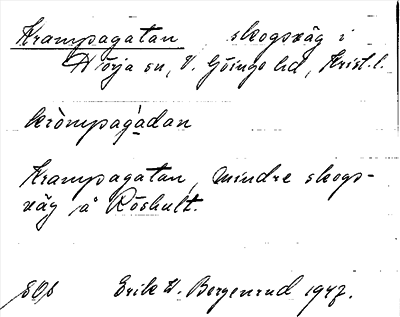 Krampagatan skogsväg i
Hörja sn, V. Göinge hd, Krist. l.
kròmpagàdan
Krampagatan, mindre skogs-
väg å Röshult.
Erik W. Bergenrud 1947.